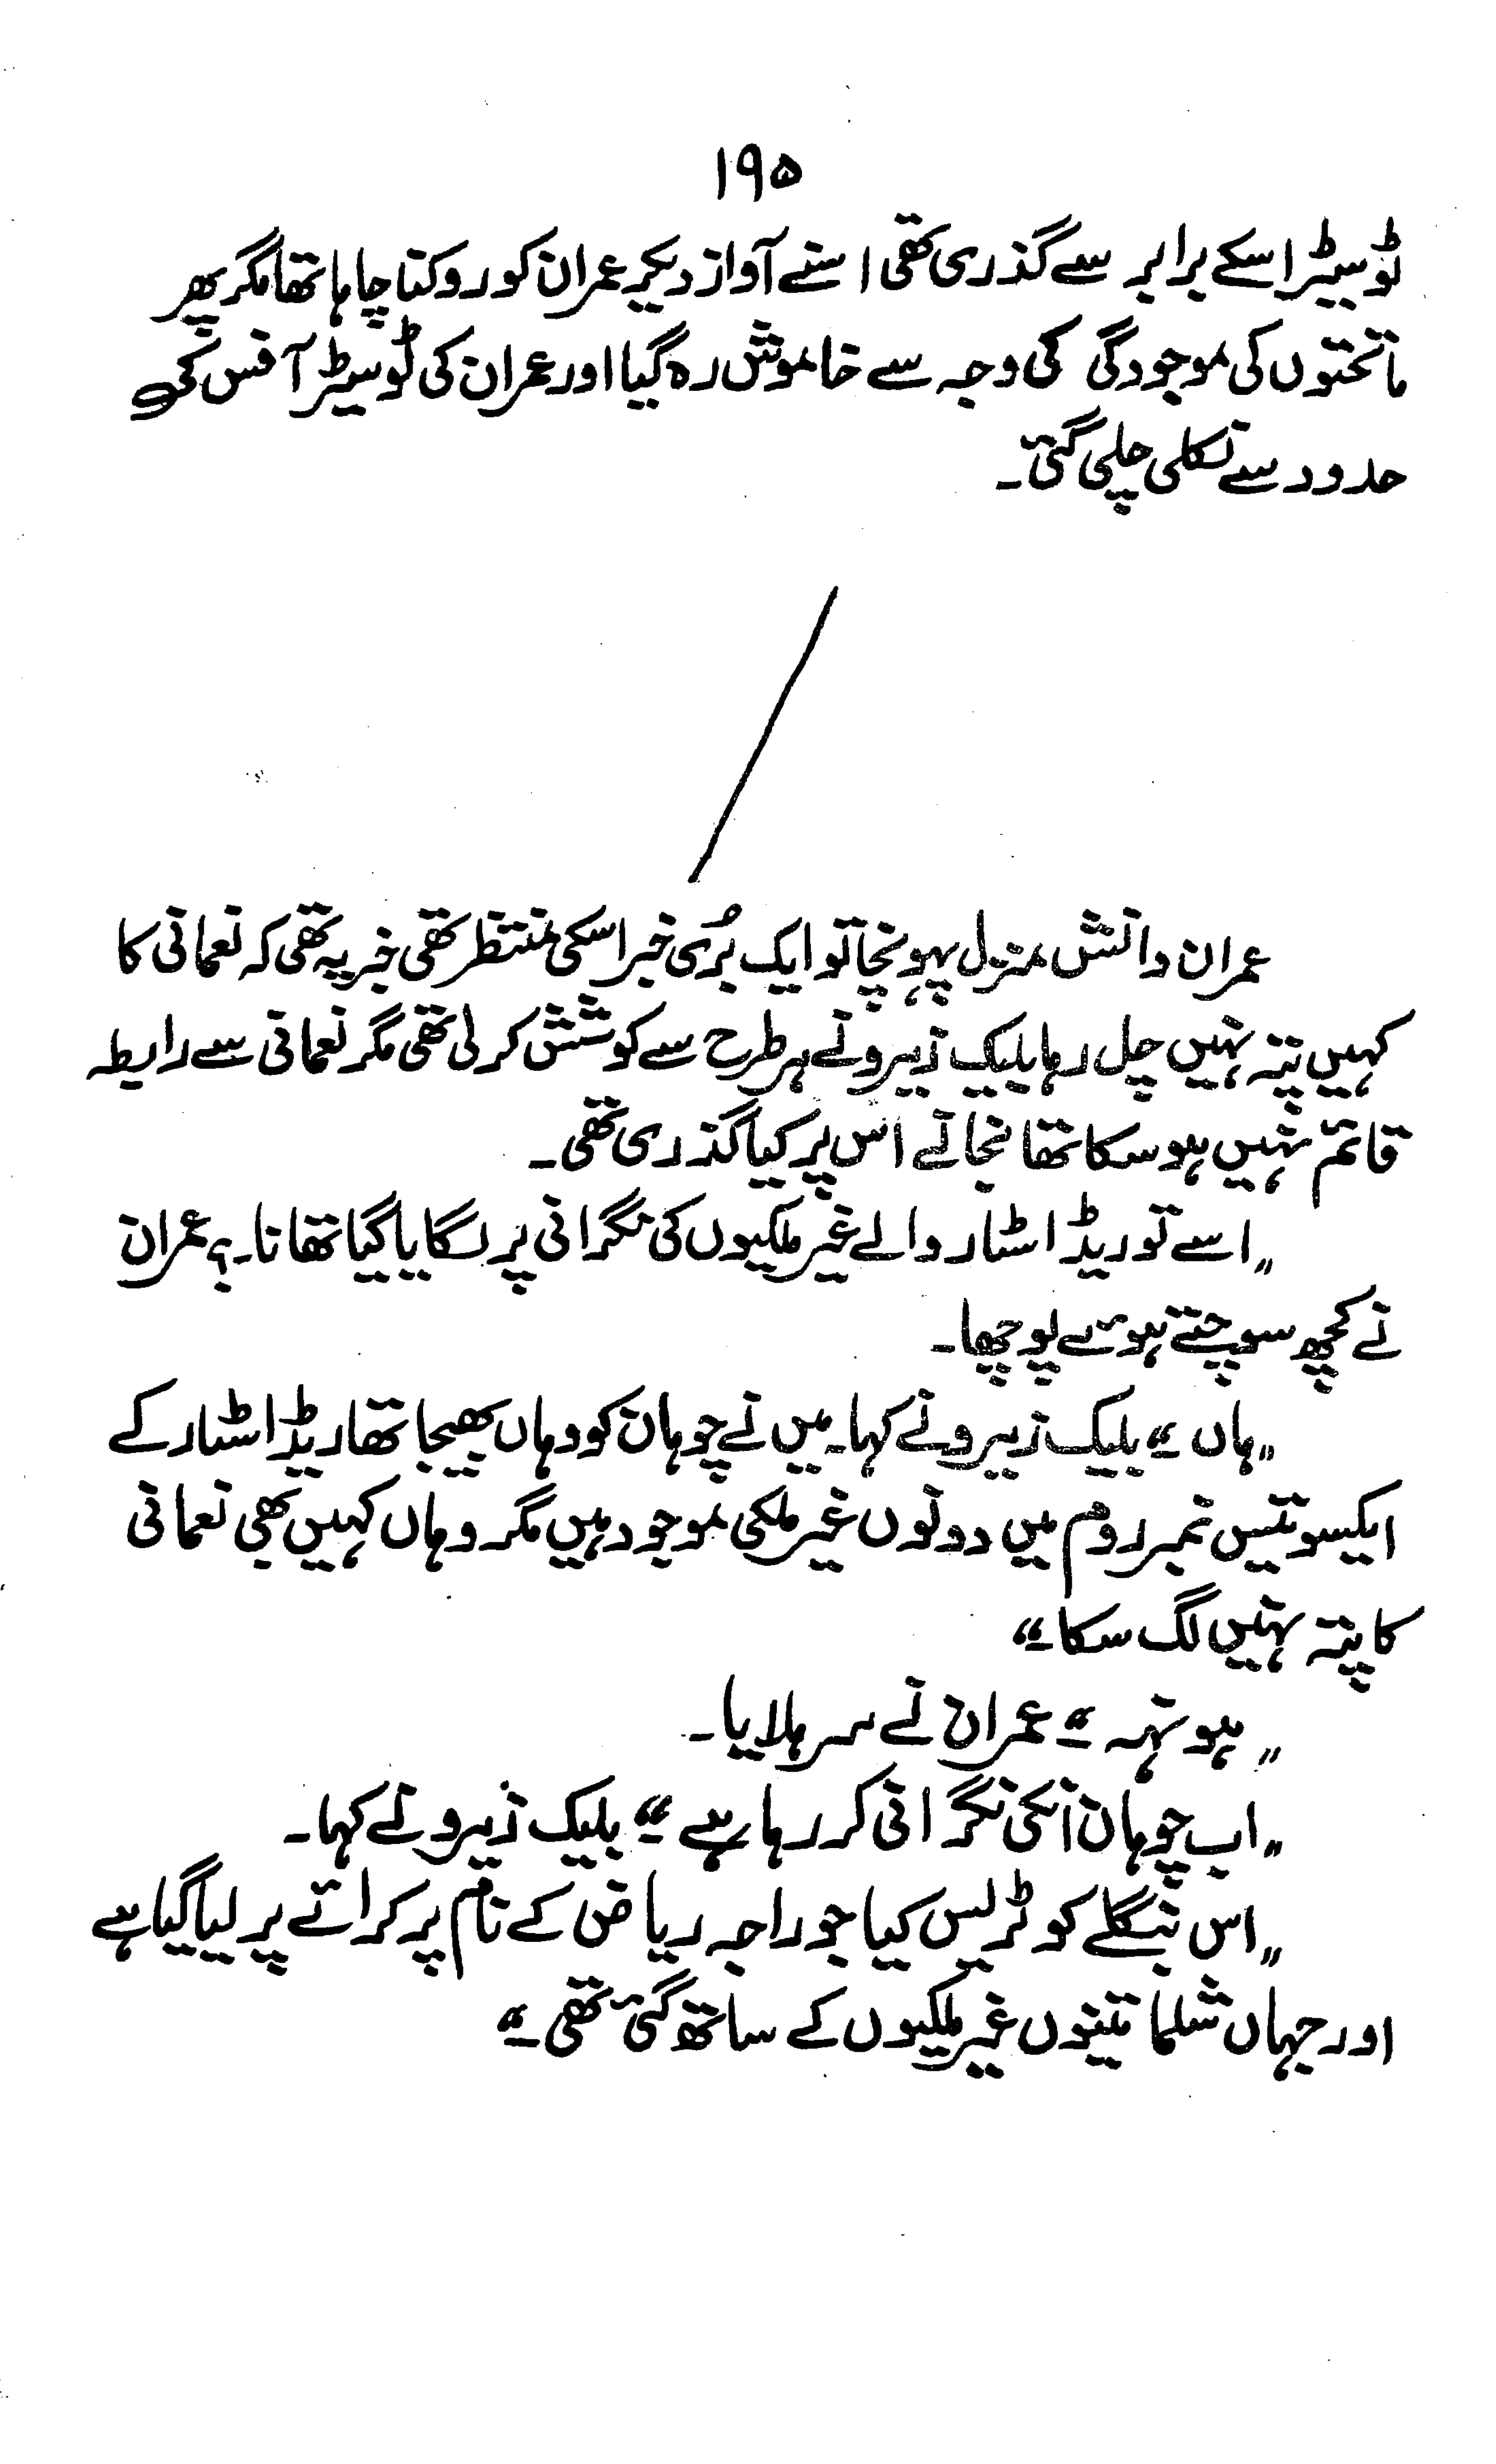 ۱۹۵
ٹوسیٹر اسکے برابر سے گذری تھی اسنے آواز دیکر عمران کو روکنا چاہا تھا مگر پھر
ماتحتوں کی موجودگی کی وجہ سے خاموش رہ گیا اور عمران کی ٹوسیٹر آفس کی
حدود سے نکلی چلی گئی۔
عمران دانش منزل پہونچا تو ایک بُری خبر اسکی منتظر تھی خبر یہ تھی کہ نعمانی کا
کہیں پتہ نہیں چل رہا بلیک زیرو نے ہر طرح سے کوشش کر لی تھی مگر نعمانی سے رابطہ
قائم نہیں ہو سکا تھا نجانے اس پر کیا گذری تھی۔
"اسے تو ریڈ اسٹار والے غیر ملکیوں کی نگرانی پر لگایا گیا تھا نا۔؟ عمران
نے کچھ سوچتے ہوئے پوچھا۔
"ہاں۔" بلیک زیرو نے کہا۔ میں نے چوہان کو وہاں بھیجا تھا ریڈ اسٹار کے
ایکسو تیس نمبر روم میں دونوں غیر ملکی موجود ہیں مگر وہاں کہیں بھی نعمانی
کا پتہ نہیں لگ سکا۔"
"ہونہہ۔" عمران نے سر ہلایا۔
"اب چوہان انکی نگرانی کر رہا ہے۔" بلیک زیرو نے کہا۔
"اس بنگلے کو ٹریس کیا جو راجہ ریاض کے نام پر کرائے پر لیا گیا ہے
اور جہاں شلما تینوں غیر ملکیوں کے ساتھ گئی تھی۔"